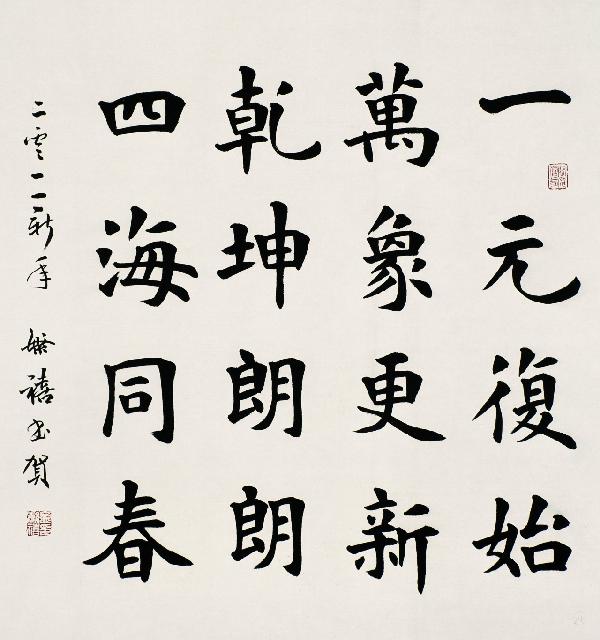 一元復始
萬象更新
乾坤朗朗
四海同春
二零一一新年 無禧書賀